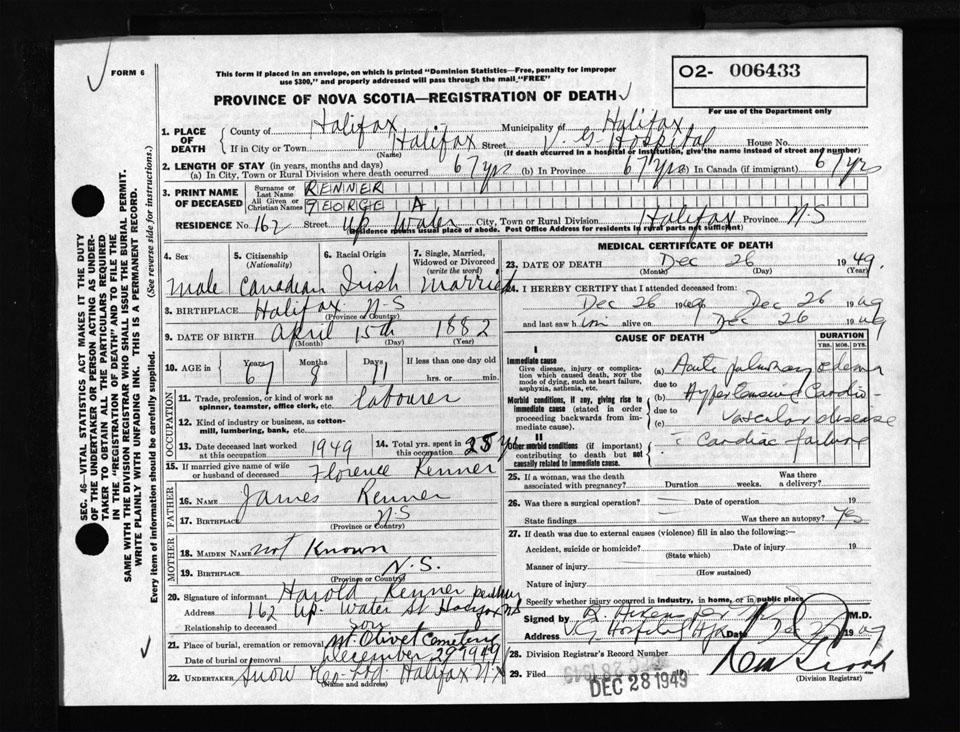 FORM 6
This form if placed in an envelope, on which is printed "Dominion Statistics—Free, penalty for improper
use $300," and properly addressed will pass through the mail "FREE"
PROVINCE OF NOVA SCOTIA—REGISTRATION OF DEATH
O2- 006433
For use of the Department only
SEC. 46—VITAL STATISTICS ACT MAKES IT THE DUTY
OF THE UNDERTAKER OR PERSON ACTING AS UNDER-
TAKER TO OBTAIN ALL THE PARTICULARS REQUIRED
IN THE "REGISTRATION OF DEATH" AND TO FILE THE
SAME WITH THE DIVISION REGISTRAR WHO SHALL ISSUE THE BURIAL PERMIT.
WRITE PLAINLY WITH UNFADING INK. THIS IS A PERMANENT RECORD.
Every item of information should be carefully supplied. (See reverse side for instructions.)
1. PLACE OF DEATH
County of Halifax Municipality of Halifax
If in City or Town Halifax Street V. G. Hospital House No.
(Name) (If death occurred in a hospital or institution, give the name instead of street and number)
2. LENGTH OF STAY (in years, months and days)
(a) In City, Town or Rural Division where death occurred 67 yrs (b) In Province 67 yrs (c) In Canada (if immigrant) 67 yrs
3. PRINT NAME OF DECEASED
Surname or Last Name RENNER
All Given or Christian Names GEORGE A
RESIDENCE No. 162 Street Up Water City, Town or Rural Division Halifax Province N.S
(Residence means usual place of abode. Post Office Address for residents in rural parts not sufficient)
4. Sex
Male
5. Citizenship (Nationality)
Canadian
6. Racial Origin
Irish
7. Single, Married, Widowed or Divorced (write the word)
Married
8. BIRTHPLACE Halifax N-S
(Province or Country)
9. DATE OF BIRTH April 15th 1882
(Month) (Day) (Year)
10. AGE in Years Months Days If less than one day old
67 8 11 hrs. or min.
OCCUPATION
11. Trade, profession, or kind of work as
spinner, teamster, office clerk, etc. labourer
12. Kind of industry or business, as cotton-
mill, lumbering, bank, etc.
13. Date deceased last worked at this occupation 1949
14. Total yrs. spent in this occupation 25 yrs
15. If married give name of wife
or husband of deceased Florence Renner
FATHER
16. NAME James Renner
17. BIRTHPLACE N-S
(Province or Country)
MOTHER
18. MAIDEN NAME not Known
19. BIRTHPLACE N.S.
(Province or Country)
20. Signature of informant Harold Renner
Address 162 Up. Water St Halifax NS
Relationship to deceased son
21. Place of burial, cremation or removal Mt. Olivet Cemetery
Date of burial or removal December 29 1949
22. UNDERTAKER Snow & Co. Ltd. Halifax N.S
(Name and address)
MEDICAL CERTIFICATE OF DEATH
23. DATE OF DEATH Dec 26 1949.
(Month) (Day) (Year)
24. I HEREBY CERTIFY that I attended deceased from:
Dec 26 1949 Dec 26 1949
and last saw him alive on Dec 26 1949
CAUSE OF DEATH
DURATION
YRS. MOS. DYS.
I
Immediate cause
Give disease, injury or complica-
tion which caused death, NOT the
mode of dying, such as heart failure,
asphyxia, asthenia, etc.
Morbid conditions, if any, giving rise to
immediate cause (stated in order
proceeding backwards from im-
mediate cause).
II
Other morbid conditions (if important)
contributing to death but not
causally related to immediate cause.
(a) Acute pulmonary edema
due to
(b) Hypertensive Cardio-
due to
(c) vascular disease
c Cardiac failure
25. If a woman, was the death
associated with pregnancy? Duration weeks. Was there a delivery?
26. Was there a surgical operation? Date of operation 19
State findings Was there an autopsy? Yes
27. If death was due to external causes (violence) fill in also the following:—
Accident, suicide or homicide? Date of injury 19
(State which)
Manner of injury
(How sustained)
Nature of injury
Specify whether injury occurred in industry, in home, or in public place
Signed by M.D.
Address V.G. Hospital Hfx Date Dec 1949
28. Division Registrar's Record Number
29. Filed DEC 28 1949
(Division Registrar)